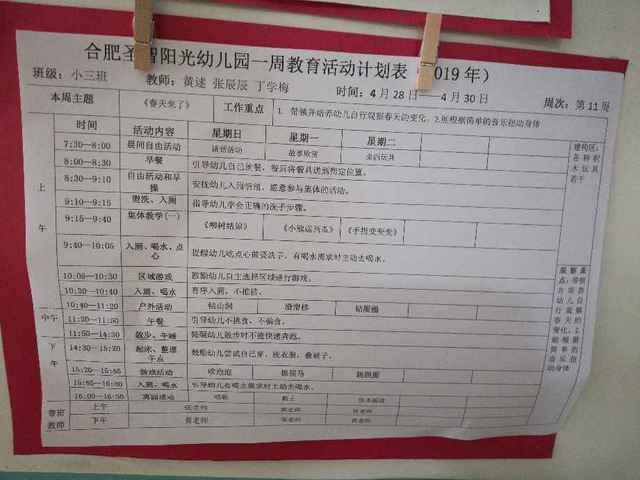 合肥圣智阳光幼儿园一周教育活动计划表（2019年）
班级：小三班 教师：黄逑 张辰辰 丁学梅 时间：4月28日——4月30日 周次：第11周
本周主题 《春天来了》 工作重点 1. 带领并培养幼儿自行观察春天的变化，2.能根据简单的音乐扭动身体
时间 活动内容 星期日 星期一 星期二
上午
7:30—8:00 晨间自由活动 谈话活动 故事欣赏 桌面玩具
8:00—8:30 早餐 引导幼儿自己吃饭，餐后将餐具送到指定位置。
8:30—9:10 自由活动和早操 安抚幼儿入园情绪，愿意参与集体的活动。
9:10—9:15 盥洗、入厕 指导幼儿学会正确的洗手步骤。
9:15—9:40 集体教学（一） 《柳树姑娘》 《手指变变变》
9:40—10:05 入厕、喝水、点心 提醒幼儿吃点心前要洗手，有喝水需求时主动去喝水。
10:05—10:30 区域游戏 鼓励幼儿自主选择区域进行游戏。
10:30—10:40 入厕、喝水 有序入厕，不推挤。
10:40—11:20 户外活动 钻山洞 滑滑梯 钻圈圈
中午
11:20—11:50 午餐 引导幼儿不挑食、不偏食。
11:50—14:30 散步、午睡 提醒幼儿散步时不能快速奔跑。
下午
14:30—15:20 起床、整理 午点 鼓励幼儿尝试自己穿、脱衣服，叠被子。
15:20—15:50 游戏活动 吹泡泡
15:50—16:00 入厕、喝水 引导幼儿有喝水需求时主动去喝水。
16:00—16:50 离园活动
带班教师 上午 张老师 黄老师
下午 黄老师 张老师
建构区：各种积木玩具若干